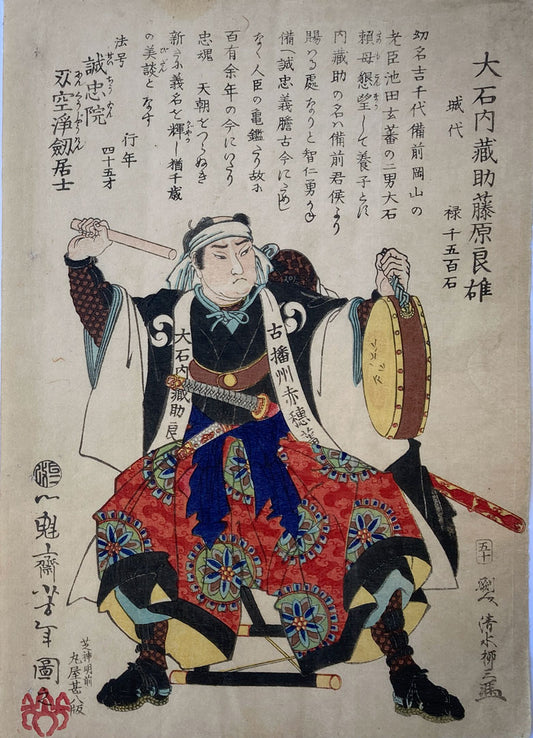 大石内藏助藤原良雄
城代
禄千五百石
幼名吉千代備前岡山の
老臣池田玄蕃の二男大石
頼母懇望して養子とす
内藏助の名ハ備前君侯より
賜る處なりと智仁勇をかね
備へ誠忠義膽古今にためし
なく人臣の亀鑑たり故に
百有余年の今にいたり
忠魂 天朝をつらぬき
新に義名を輝し猶千歳
の美談となす
法号
誠忠院
刃空淨劔居士
行年
四十五才
古播州赤穂
大石内藏助良
一魁斎芳年圖
芝神明前
丸屋甚八版
五十
清水柳三